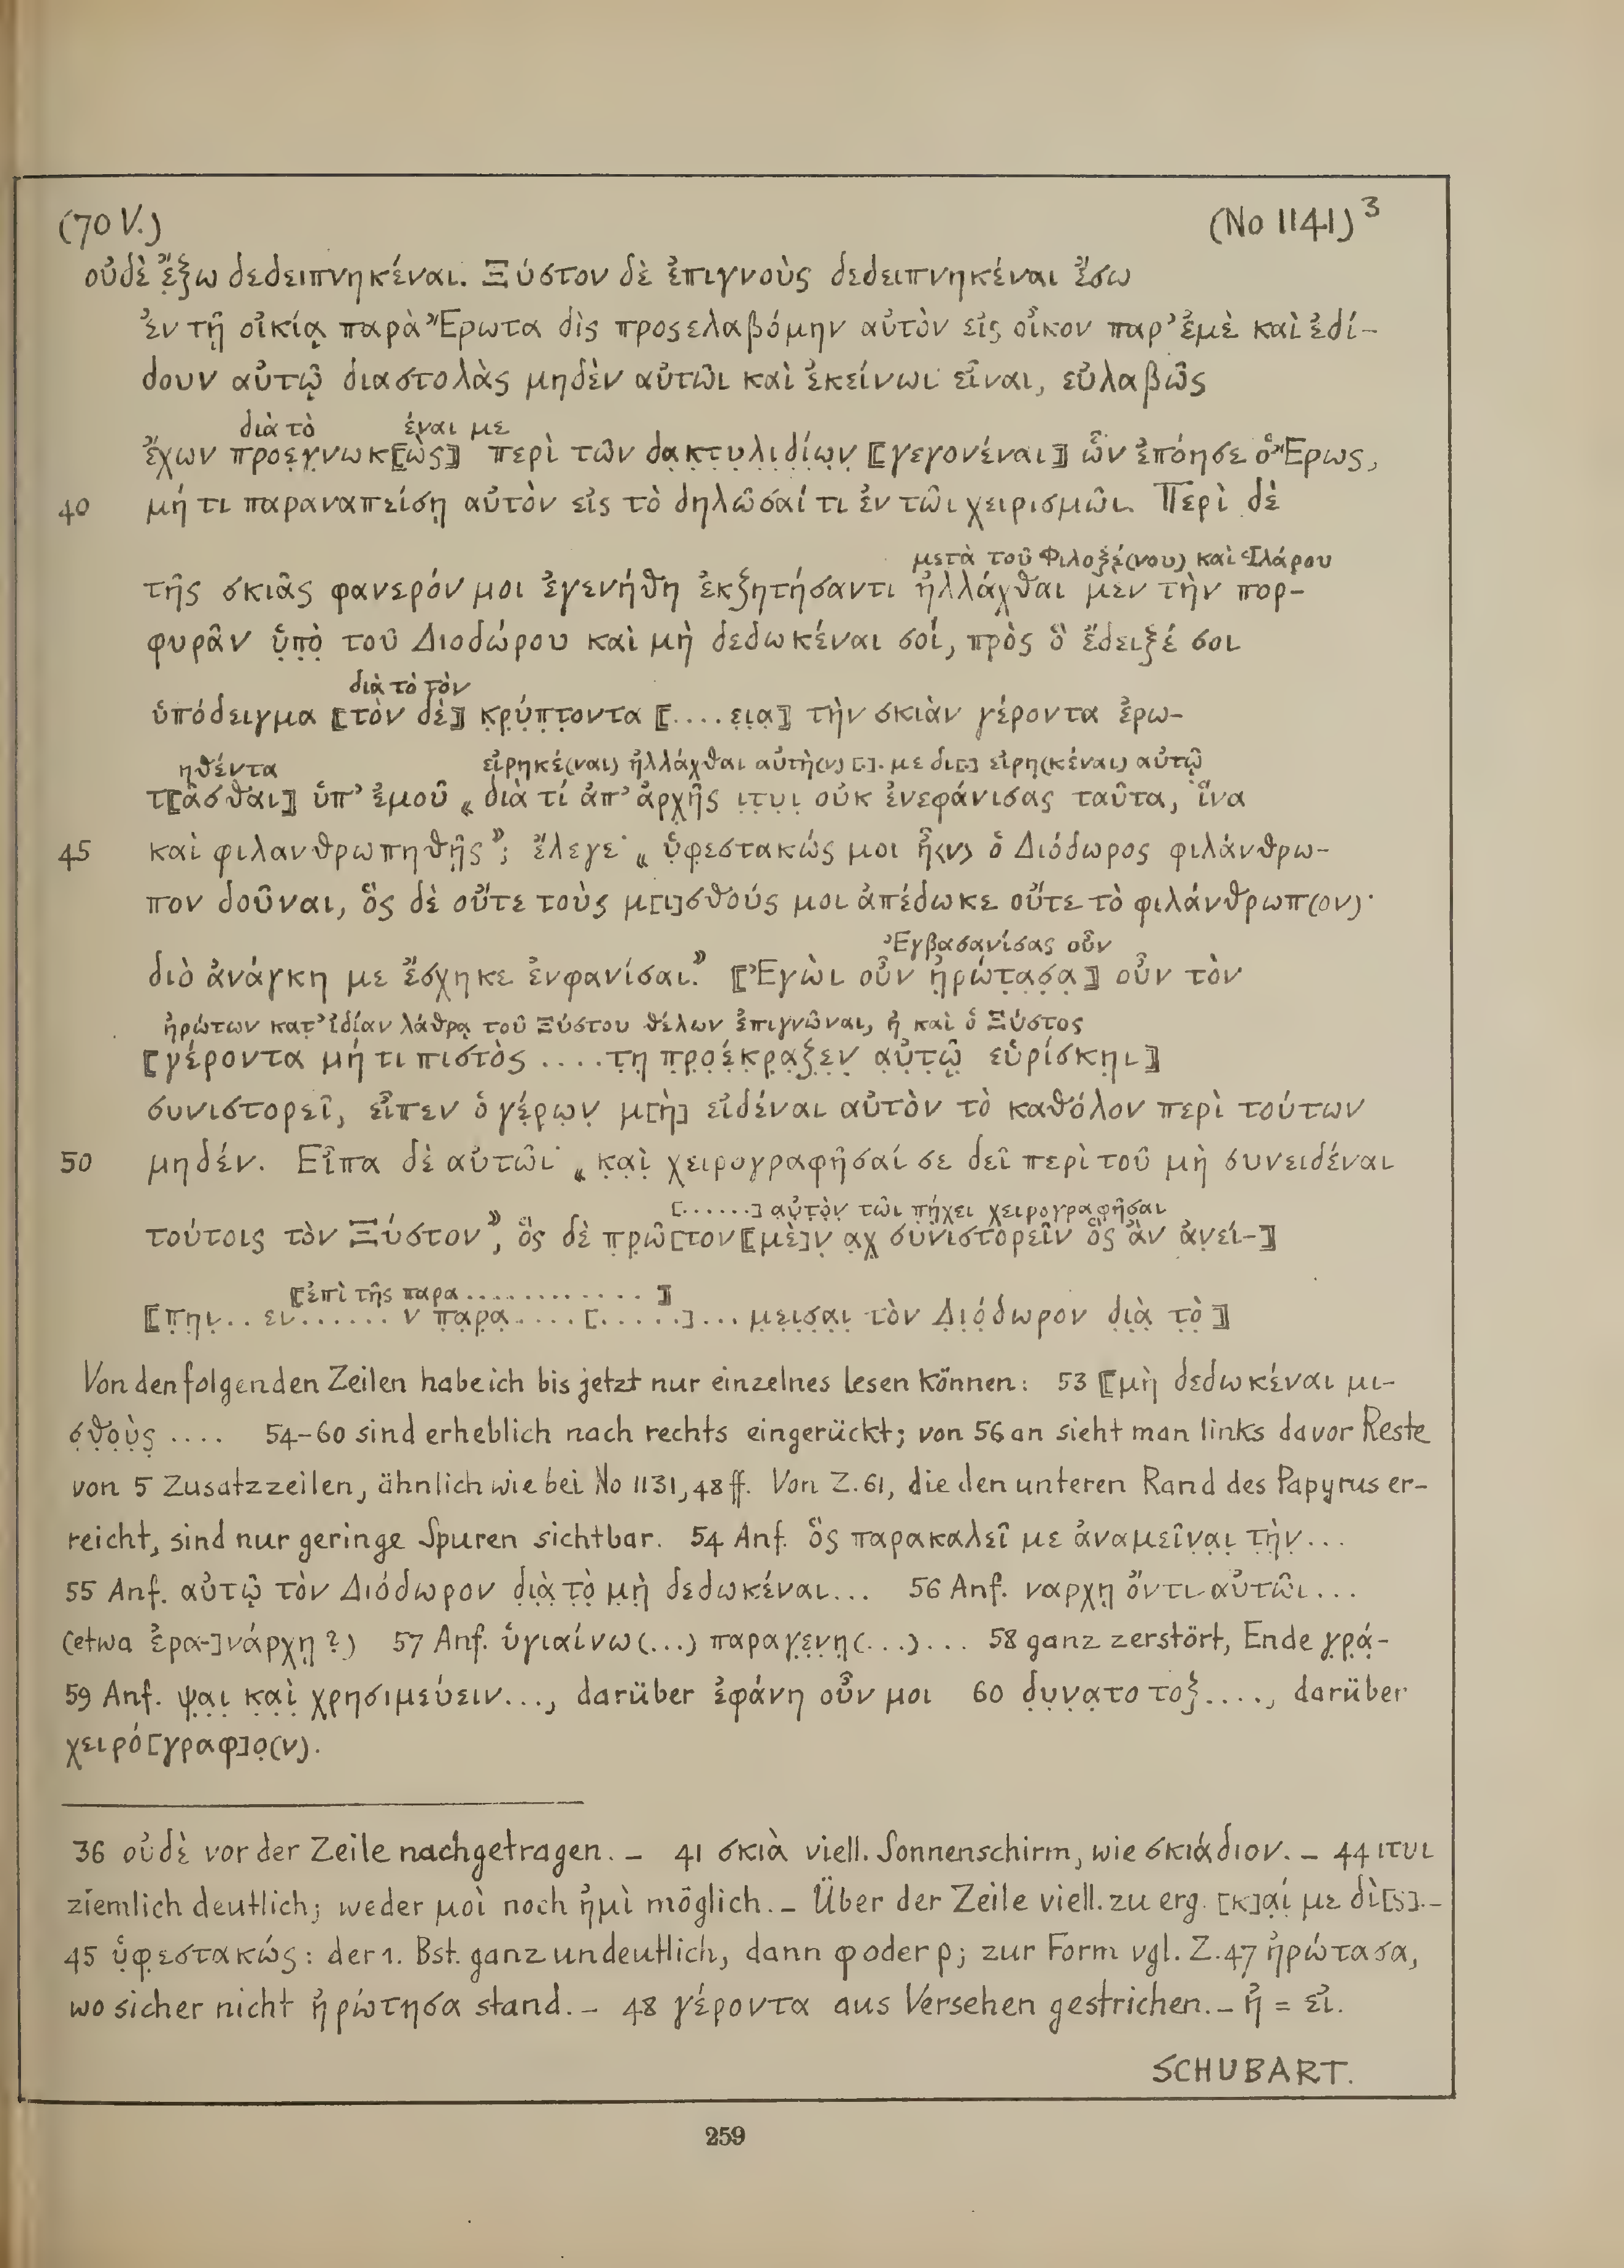 (70 V.) (No 1141) 3
οὐδὲ ἔ̣ξω δεδειπνηκέναι. Ξύστον δὲ ἐπιγνοὺς δεδειπνηκέναι ἔσω
ἐν τῇ οἰκίᾳ παρὰ Ἔρωτα δὶς προςελαβόμην αὐτὸν εἰς οἶκον παρ' ἐμὲ καὶ ἐδί-
δουν αὐτῷ διαστολὰς μηδὲν αὐτῶι καὶ ἐκείνωι εἶναι, εὐλαβῶς
διὰ τὸ έναι με
ἔχων προε̣γ̣νωκ⟦ὼς⟧ περὶ τῶν δα̣κ̣τ̣υ̣λ̣ι̣δ̣ίω̣ν̣ ⟦γεγονέναι⟧ ὧν ἐπόησε ὁ Ἔρως,
40 μή τι παραναπείσῃ αὐτὸν εἰς τὸ δηλῶσαί τι ἐν τῶι χειρισμῶι. Περὶ δὲ
μετὰ τοῦ Φιλοξέ̣(νου) καὶ Ἱλάρου
τῆς σκιᾶς φανερόν μοι ἐγενήθη ἐκζητήσαντι ἠλλάχθαι μὲν τὴν πορ-
φυρᾶν ὑ̣π̣ὸ̣ τοῦ Διοδώρου καὶ μὴ δεδωκέναι σοί, πρὸς ὃ ἔδειξέ σοι
διὰ τὸ τ̣ὸν
ὑπόδειγμα ⟦τὸν δὲ⟧ κ̣ρ̣ύ̣π̣τ̣οντα ⟦....ε̣ι̣α̣⟧ τὴν σκιὰν γέροντα ἐρω-
ηθέντα εἰρηκέ(ναι) ἠλλάχθαι αὐτὴ(ν) [.]. με δι[.] εἰρη(κέναι) αὐτῷ
τ⟦ᾶσθαι⟧ ὑπ' ἐμοῦ „διὰ τί ἀπ' ἀρχῆς ι̣τ̣υ̣ι̣ οὐκ ἐνεφάνισας ταῦτα, ἵνα
45 καὶ φιλανθρωπηθῇς”; ἔλεγε· „ὑ̣φ̣εστακώς μοι ἦ‹ν› ὁ Διόδωρος φιλάνθρω-
πον δοῦναι, ὃς δὲ οὔτε τοὺς μ[ι]σθούς μοι ἀπέδωκε οὔτε τὸ φιλάνθρωπ(ον)·
Ἐγβασανίσας οὖν
διὸ ἀνάγκη με ἔσχηκε ἐνφανίσαι.” ⟦Ἐγὼι οὖν ἠ̣ρώτ̣α̣σ̣α̣⟧ οὖν τὸν
ἠρώτων κατ' ἰδίαν λάθρᾳ τοῦ Ξύστου θέλων ἐπιγνῶναι, ἠ καὶ ὁ Ξύστος
⟦γέροντα μή τι πιστὸς ....τ̣η̣ π̣ρ̣ο̣έ̣κ̣ρ̣α̣ξ̣ε̣ν̣ α̣ὐ̣τ̣ῷ̣ εὑρίσκη̣ι⟧
συνιστορεῖ, εἶπεν ὁ γέ̣ρ̣ω̣ν̣ μ[ὴ] εἰδέναι αὐτὸν τὸ καθόλον περὶ τούτων
50 μηδέν. Εἶπα δὲ αὐτῶι· „κ̣α̣ὶ̣ χειρογραφῆσαί σε δεῖ περὶ τοῦ μὴ συνειδέναι
[......] α̣ὐ̣τ̣ὸ̣ν̣ τῶι π̣ήχει χειρογραφ̣ῆσαι
τούτοις τὸν Ξύστον”, ὃς δὲ π̣ρ̣ῶ[τον⟦μὲ]ν̣ α̣χ̣ συνιστορεῖν ὃς ἂν ἀ̣ν̣εί-⟧
⟦ἐπὶ τῆς παρα............⟧
⟦π̣η̣ι̣.. ε̣ι̣...... ν π̣α̣ρ̣α̣.....[.....]... μ̣ε̣ι̣σ̣α̣ι̣ τὸν Δ̣ι̣ό̣δωρον δ̣ι̣ὰ̣ τ̣ὸ̣⟧
Von den folgenden Zeilen habe ich bis jetzt nur einzelnes lesen können: 53 ⟦μὴ̣ δεδωκέναι μι-
σ̣θ̣ο̣ὺ̣ς̣ .... 54–60 sind erheblich nach rechts eingerückt; von 56 an sieht man links davor Reste
von 5 Zusatzzeilen, ähnlich wie bei No 1131, 48 ff. Von Z. 61, die den unteren Rand des Papyrus er-
reicht, sind nur geringe Spuren sichtbar. 54 Anf. ὃς παρακαλεῖ με ἀναμεῖν̣α̣ι̣ τ̣ὴ̣ν̣...
55 Anf. αὐτῷ τὸν Διόδωρον δ̣ι̣ὰ̣ τ̣ὸ̣ μ̣ὴ̣ δεδωκέναι... 56 Anf. ναρχῃ ὄντι αὐτῶι...
(etwa ἐρα-]νάρχῃ?) 57 Anf. ὑγιαίνω(...) παραγ̣ε̣ν̣η̣(...)... 58 ganz zerstört, Ende γ̣ρ̣ά̣-
59 Anf. ψ̣α̣ι̣ κ̣α̣ὶ̣ χρησιμεύειν..., darüber ἐφάνη οὖν μοι 60 δ̣υ̣ν̣α̣το τοξ...., darüber
χειρό[γραφ]ο̣(ν).
36 οὐδὲ vor der Zeile nachgetragen. – 41 σκιὰ viell. Sonnenschirm, wie σκιάδιον. – 44 ιτυι
ziemlich deutlich; weder μοὶ noch ἠμὶ möglich. – Über der Zeile viell. zu erg. [κ]α̣ί̣ με δὶ[ς]. –
45 ὑ̣φ̣εστακώς: der 1. Bst. ganz undeutlich, dann φ oder ρ; zur Form vgl. Z. 47 ἠρώτασα,
wo sicher nicht ἠρώτησα stand. – 48 γέροντα aus Versehen gestrichen. – ἠ = εἰ.
SCHUBART.
259